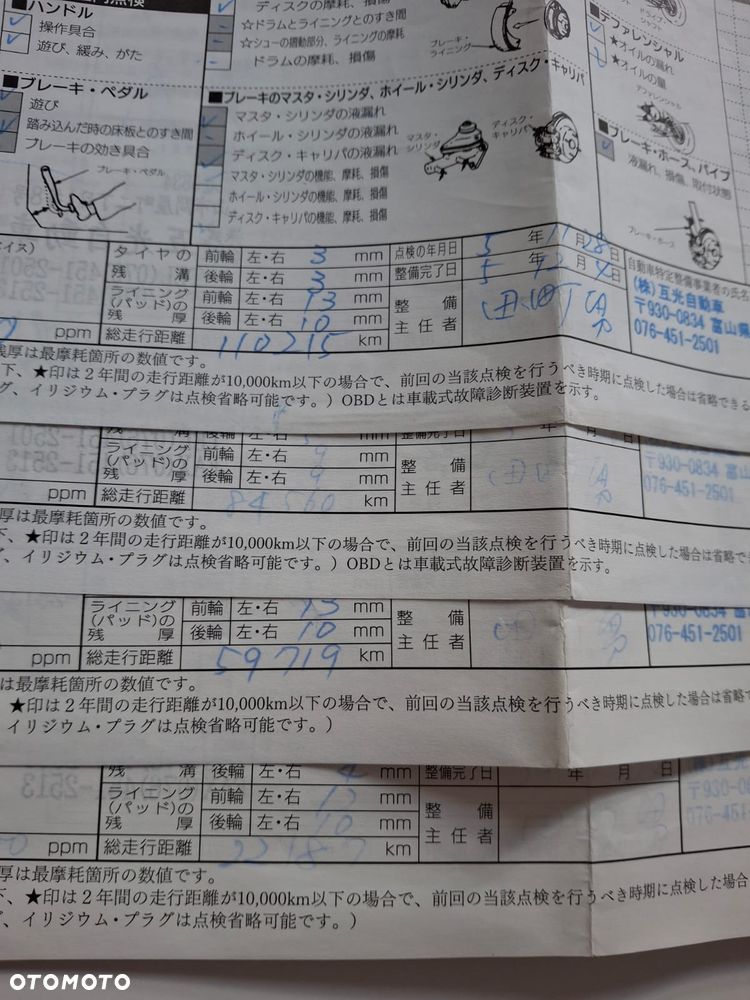 ■ハンドル
操作具合
遊び、緩み、がた
ディスクの摩耗、損傷
☆ドラムとライニングとのすき間
☆シューの摺動部分、ライニングの摩耗
ドラムの摩耗、損傷
ブレーキ・ライニング
デファレンシャル
★オイルの漏れ
★オイルの量
デファレンシャル
■ブレーキ・ペダル
遊び
踏み込んだ時の床板とのすき間
ブレーキの効き具合
ブレーキ・ペダル
■ブレーキのマスタ・シリンダ、ホイール・シリンダ、ディスク・キャリパ
マスタ・シリンダの液漏れ
ホイール・シリンダの液漏れ
ディスク・キャリパの液漏れ
マスタ・シリンダの機能、摩耗、損傷
ホイール・シリンダの機能、摩耗、損傷
ディスク・キャリパの機能、摩耗、損傷
マスタ・シリンダ
ディスク・キャリパ
■ブレーキ・ホース、パイプ
液漏れ、損傷、取付状態
ブレーキ・ホース
タイヤの残溝 前輪 左・右 3 mm 点検の年月日 5 年 11 月 28 日
後輪 左・右 3 mm 整備完了日 5 年 12 月 4 日
ライニング(パッド)の残厚 前輪 左・右 13 mm 整備主任者
後輪 左・右 10 mm
ppm 総走行距離 110215 km
自動車特定整備事業者の氏名
(株)互光自動車
〒930-0834 富山県
076-451-2501
残厚は最摩耗箇所の数値です。
下、★印は2年間の走行距離が10,000km以下の場合で、前回の当該点検を行うべき時期に点検した場合は省略できる
グ、イリジウム・プラグは点検省略可能です。）OBDとは車載式故障診断装置を示す。
残溝 後輪 左・右 mm 整備完了日 年 月 日
ライニング(パッド)の残厚 前輪 左・右 9 mm 整備主任者
後輪 左・右 9 mm
ppm 総走行距離 84560 km
〒930-0834 富山
076-451-2501
厚は最摩耗箇所の数値です。
下、★印は2年間の走行距離が10,000km以下の場合で、前回の当該点検を行うべき時期に点検した場合は省略で
グ、イリジウム・プラグは点検省略可能です。）OBDとは車載式故障診断装置を示す。
ライニング(パッド)の残厚 前輪 左・右 13 mm 整備主任者
後輪 左・右 10 mm
ppm 総走行距離 59719 km
〒930-0834 富山
076-451-2501
は最摩耗箇所の数値です。
★印は2年間の走行距離が10,000km以下の場合で、前回の当該点検を行うべき時期に点検した場合は省略で
イリジウム・プラグは点検省略可能です。）
残溝 後輪 左・右 4 mm 整備完了日 年 月 日
ライニング(パッド)の残厚 前輪 左・右 mm 整備主任者
後輪 左・右 10 mm
ppm 総走行距離 km
076-451-2501
厚は最摩耗箇所の数値です。
下、★印は2年間の走行距離が10,000km以下の場合で、前回の当該点検を行うべき時期に点検した場合
グ、イリジウム・プラグは点検省略可能です。）
OTOMOTO